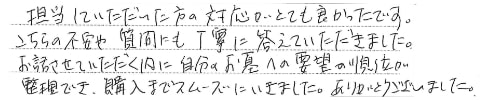 担当していただいた方の対応がとても良かったです。
こちらの不安や質問にも丁寧に答えていただきました。
お話させていただく内に自分のお墓への要望の順位が
整理でき、購入までスムーズにいきました。ありがとうございました。